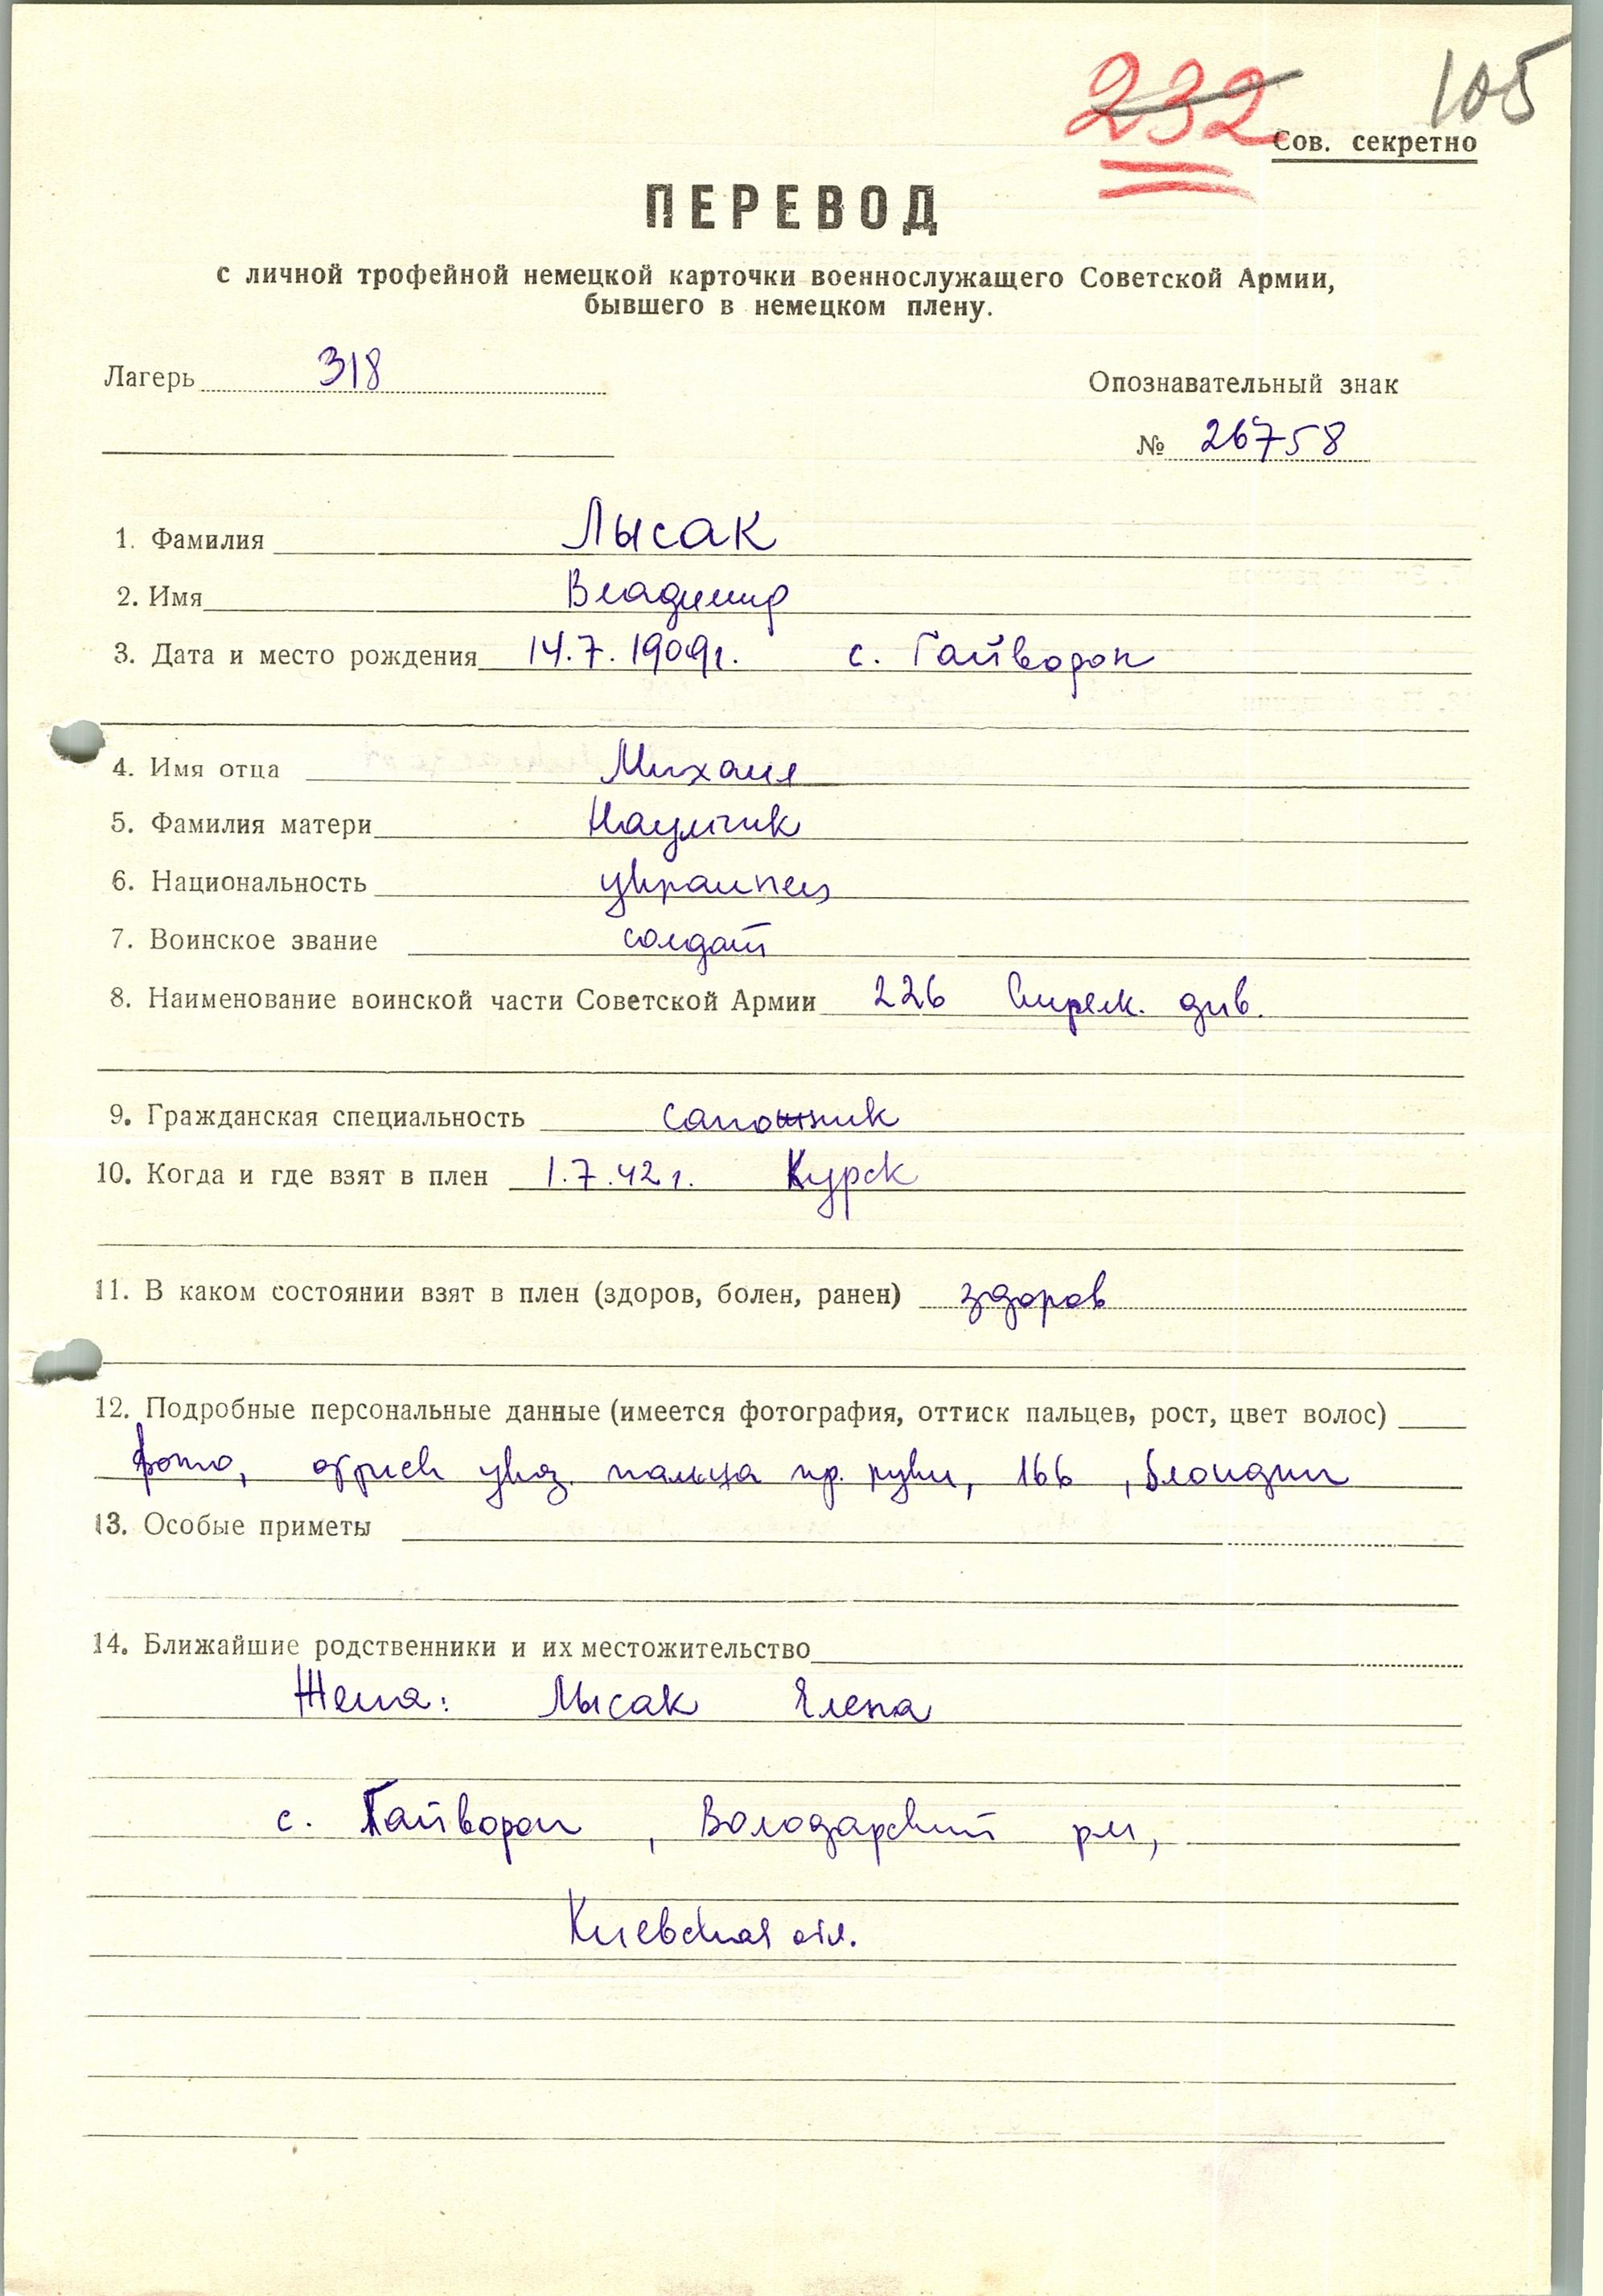 232 105
Сов. секретно
ПЕРЕВОД
с личной трофейной немецкой карточки военнослужащего Советской Армии,
бывшего в немецком плену.
Лагерь 318
Опознавательный знак
№ 26758
1. Фамилия Лысак
2. Имя Владимир
3. Дата и место рождения 14.7.1909г. с. Гайворон
4. Имя отца Михаил
5. Фамилия матери
6. Национальность украинец
7. Воинское звание солдат
8. Наименование воинской части Советской Армии 226 Стрелк. див.
9. Гражданская специальность сапожник
10. Когда и где взят в плен 1.7.42г. Курск
11. В каком состоянии взят в плен (здоров, болен, ранен) здоров
12. Подробные персональные данные (имеется фотография, оттиск пальцев, рост, цвет волос)
фото, указ. пальца пр. руки, 166, блондин
13. Особые приметы
14. Ближайшие родственники и их местожительство
Жена: Лысак Елена
с. Гайворон, Володарский
Киевская обл.